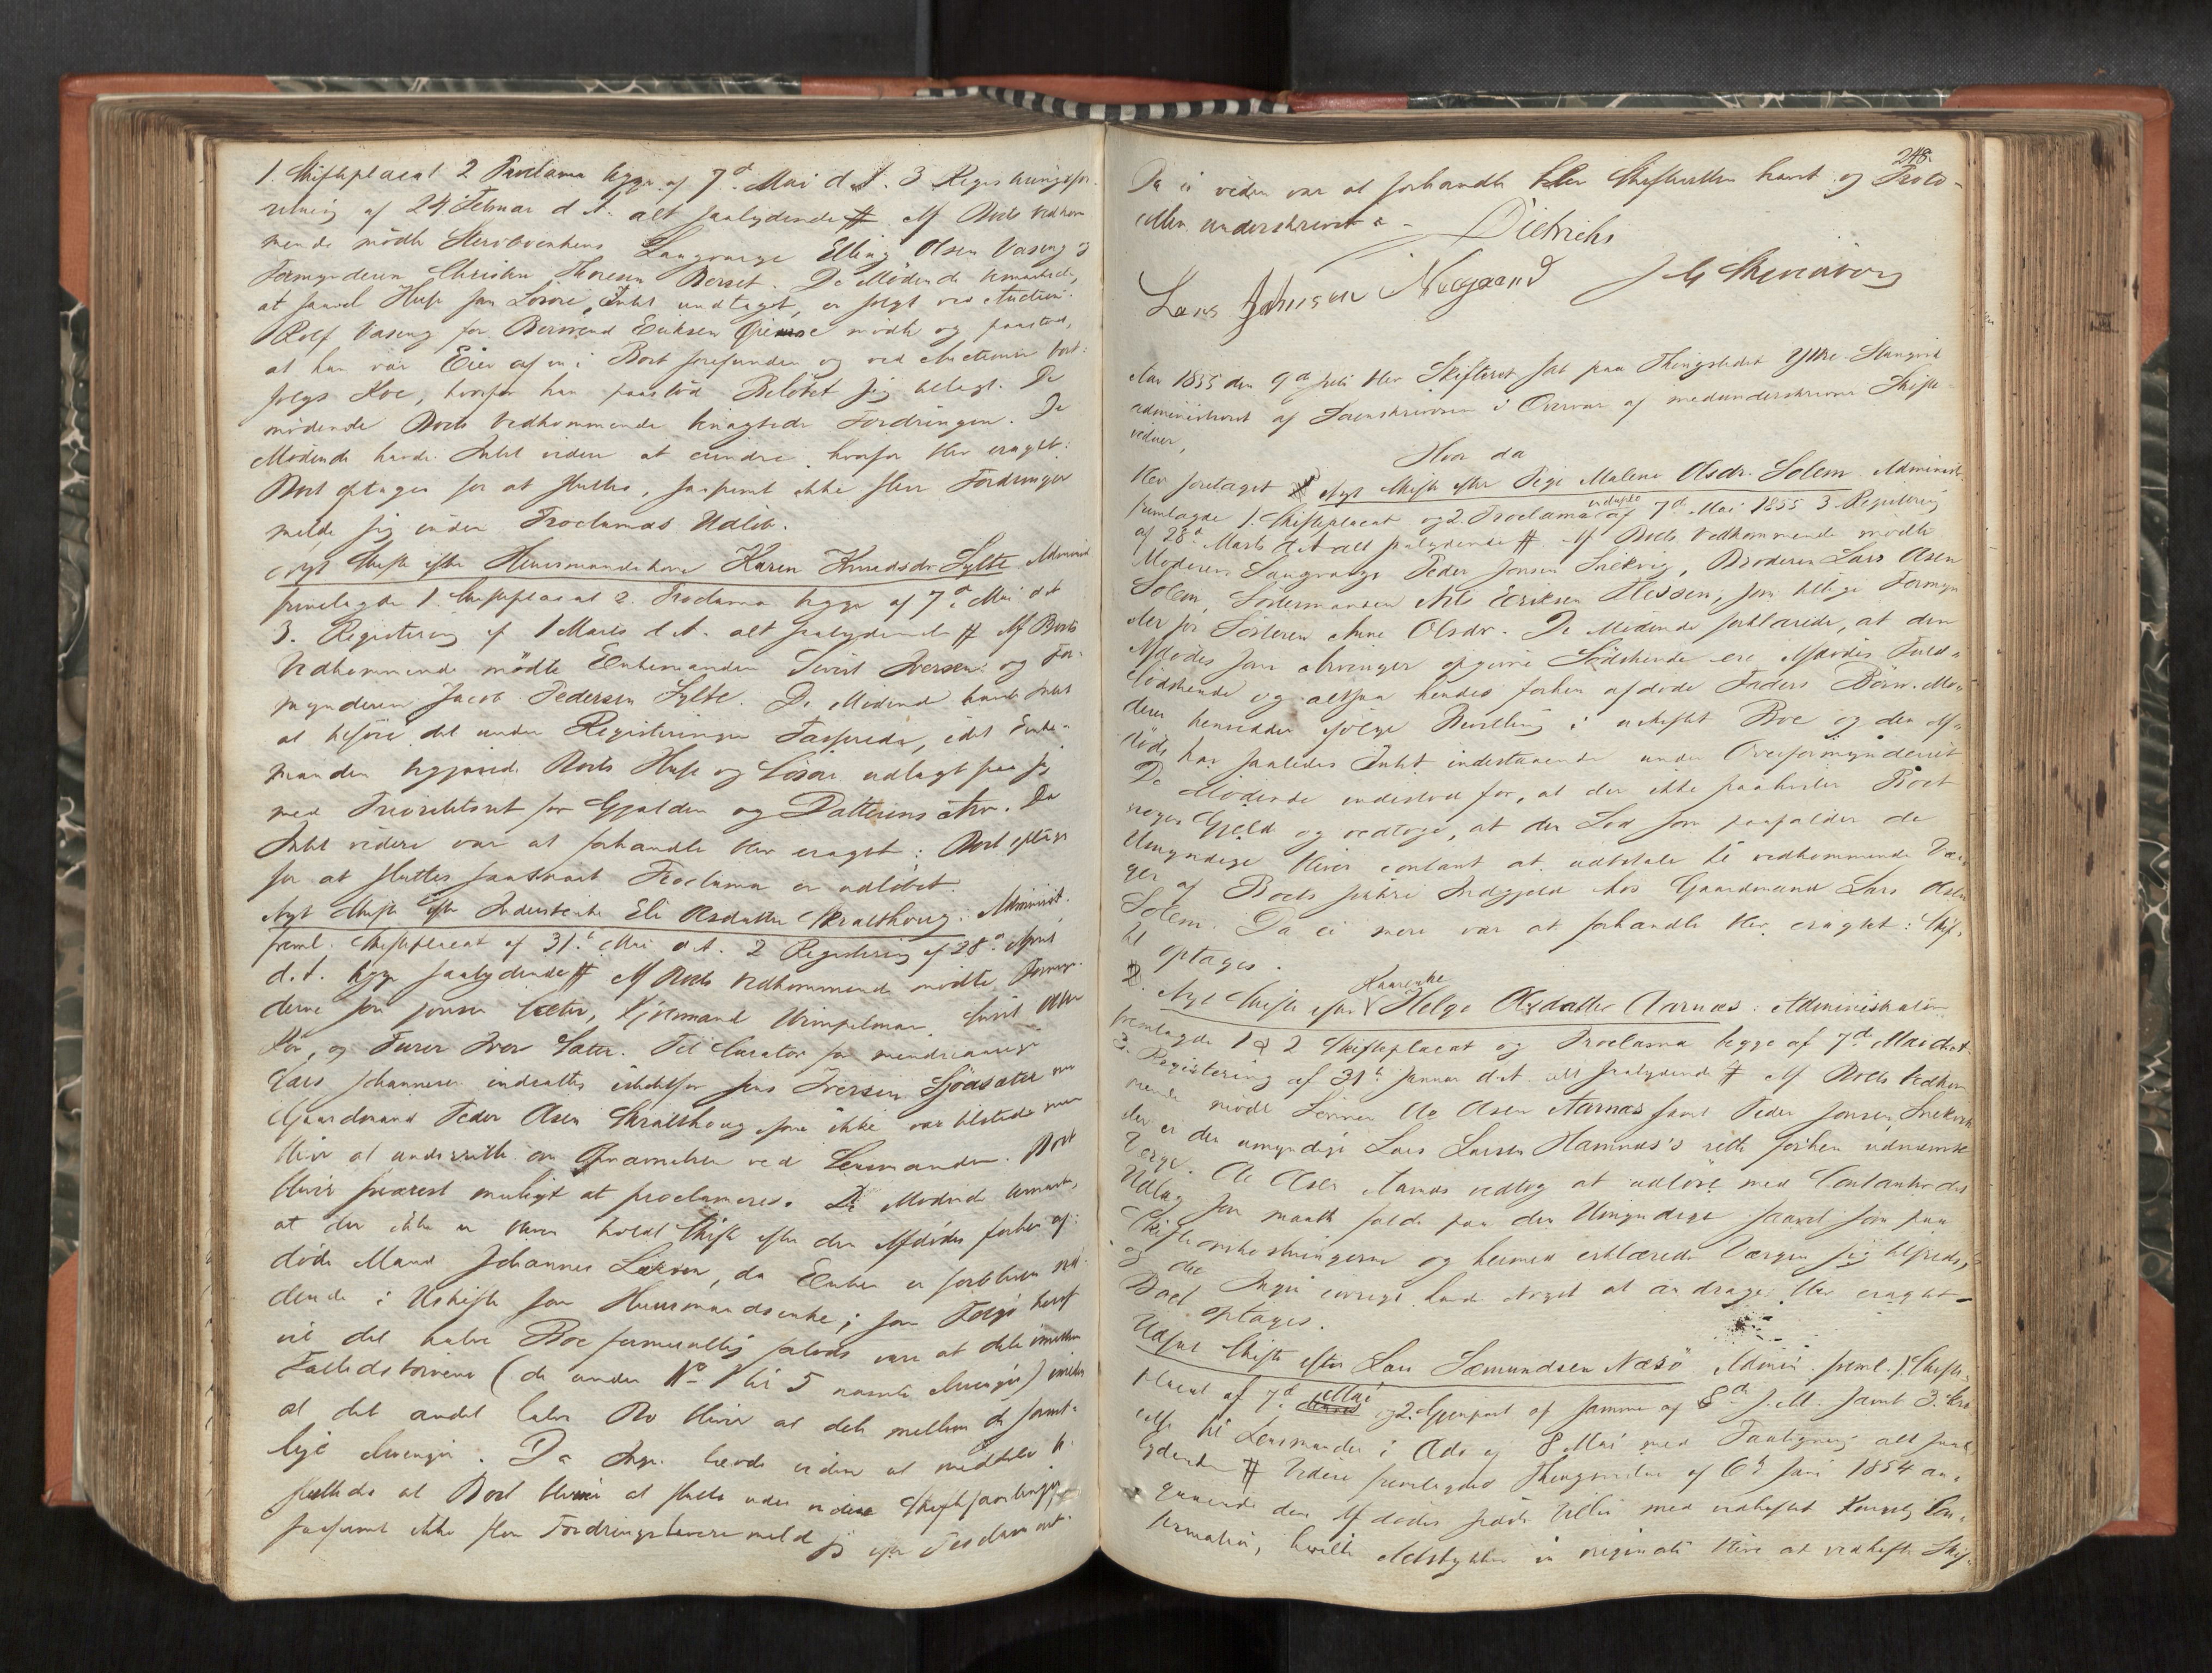 1. Skifteplacat 2 Proclama begge af 7d. Mai d. A. 3 Registreringsfor-
retning af 24 Februar d. A. alt saalydende # Af Boets Vedkom
mende mødte Stervboenkens Laugværge Elling Olsen Vaseng og
Formynderen Christen Thoresen Berset. De Mødende bemærkede,
at saavel Huse som Løsøre, Intet undtaget, er solgt ved Auction.
Rolf Vaseng for BerNend Eriksen mødte og paastod,
at han var Eier af en i Boet forefunden og ved Auctionen bort-
solgt Koe, hvorfor han paastod Beløbet sig tillagt. De
mødende Boets Vedkommende benægtede Fordringen. De
Mødende havde Intet videre at erindre, hvorfor blev eragtet:
Boet optages for at sluttes, saafremt ikke flere Fordringer
melde sig inden Proclamas Udløb.
Nyt Skifte efter Huusmandskone Karen Knudsdr. Sylte Administ
fremlagde 1. Skifteplacat 2. Proclama begge af 7d. Mai d A
3. Registering af 1 Marts d. A. alt saalydende # Af Boets
Vedkommende mødte Enkemanden Sivert Iversen og For-
mynderen Jacob Pedersen Sylte. De Mødende havde Intet
at tilføie det under Registeringen Passerede, idet Enke-
manden begjærede Boets Huse og Løsøre udlagt paa sig
med Prioritetsret for Gjælden og Datterens Arv. Da
Intet videre var at forhandle blev eragtet: Boet optages
for at sluttes saasnart Proclama er udløbet.
Nyt Skifte efter Inderstenke Eli Olsdatter Skralthoug. Administ.
freml. Skifteplacat af 31te Mai d. A. 2 Registering af 28d. April
d. A. begge saalydende # Af Boets Vedkommende mødte Formyn-
derne Jon Jonsen Sæter, Kjøbmand Wimpelman, Sivert Olsen
Rør, og Furer Iver Sæter. Til Curator for mindreaarige
Lars Johannesen indsattes istedetfor Jens Iversen Sjøasæter nu
Gaardmand Peder Olsen Skralthoug som ikke var tilstede men
bliver at underrette om Opnævnelsen ved Lensmanden. Boet
bliver snarest muligt at proclameres. De Mødende bemærk,
at der ikke er bleven holdt Skifte efter den Afdødes forhen af-
døde Mand Johannes Larsen, da Enken er forbleven sid-
dende i Uskifte som Huusmandsenke; som Følge heraf
vil det halve Boe formentlig saaledes være at dele imellem
Fælledsbørnene (de under No 1 til 5 nævnte Arvinger) imedens
at det andet halve Bo bliver at dele mellem de samt-
lige Arvinger. Da Ingen havde videre at meddele be-
sluttedes at Boet bliver at slutte uden videre Skiftesamlinger
saafremt ikke flere Fordringshavere melde sig efter Proclamaet.

248.
Da ei videre var at forhandle blev Skifteretten hævet og Proto-
collen underskrevet. -
Dietrichs
Lars Johnsen Nergaard
Aar 1855 den 9de Juli blev Skifteret sat paa Thingstedet Ytre-Stangvik
administreret af Sorenskriveren i Overvær af medunderskrevne Skifte-
vidner,
Hvor da
blev foretaget Nyt Skifte efter Pige Malene Olsdr. Solem Administ.
fremlagde 1. Skifteplacat og 2. Proclama af 7d. Mai 1855 3. Registering
af 28d. Marts d A alt saalydende # Af Boets Vedkommende mødte
Moderens Laugværge Peder Jonsen Snekvig, Broderen Lars Olsen
Solem, Sødermanden Nils Eriksen Hessen, som tillige Formyn
der for Søsteren Anne Olsdr. De Mødende forklarede, at den
Afdødes som Arvinger opgivne Sødskende ere Afdødes Fuld-
sødskende og altsaa hendes forhen afdøde Faders Børn. Mo-
deren hensidder ifølge Bevilling i uskiftet Boe og den Af-
døde har saaledes Intet indestaaende under Overformynderiet
De Mødende indestod for, at der ikke paahviler Boet
nogen Gjæld og vedtoge, at den Lod som paafalder de
Umyndige bliver contant at udbetale til vedkommende Vær-
ger af Boets sikkre Indgjæld hos Gaardmand Lars Olsen
Solem. Da ei mere var at forhandle blev eragtet: Skif-
tet optages.
Nyt Skifte efter Kaarenke Helge Olsdatter Aarnæs. Administrator
fremlagde 1 & 2 Skifteplacat og Proclama begge af 7d. Mai d A.
3. Registering af 31te Januar d A alt saalydende # Af Boets Vedkom
mende mødte Sønnen Ole Olsen Aarnæs samt Peder Jonsen Snekvik
der er den umyndige Lars Larsen Hamnæs's rette forhen udnævnte
Værge. Ole Olsen Aarnæs vedtog at indløse med Contanter det
Udlæg som maatte falde paa den Umyndige saavel som paa
Skifteomkostningerne og hermed erklærede Værgen sig tilfreds,
og da Ingen iøvrigt havde Noget at andrage, blev eragtet
Boet optages.
Udsat Skifte efter Lars Sæmundsen Næsø Admini. freml. 1. Skifte-
placat af 7d. Mai og 2. Gjenpart af samme af 8de s. M. samt 3. Skri
velse til Lensmanden i Øde af 8 Mai med Paategning alt saa
lydende # Videre fremlagdes Thingsvidne af 6te Juni 1854 an-
gaaende den Afdødes sidste Villie med vedheftet Kongelig Con-
firmation, hvilke Actstykker in originali blive at vedhefte Skif-